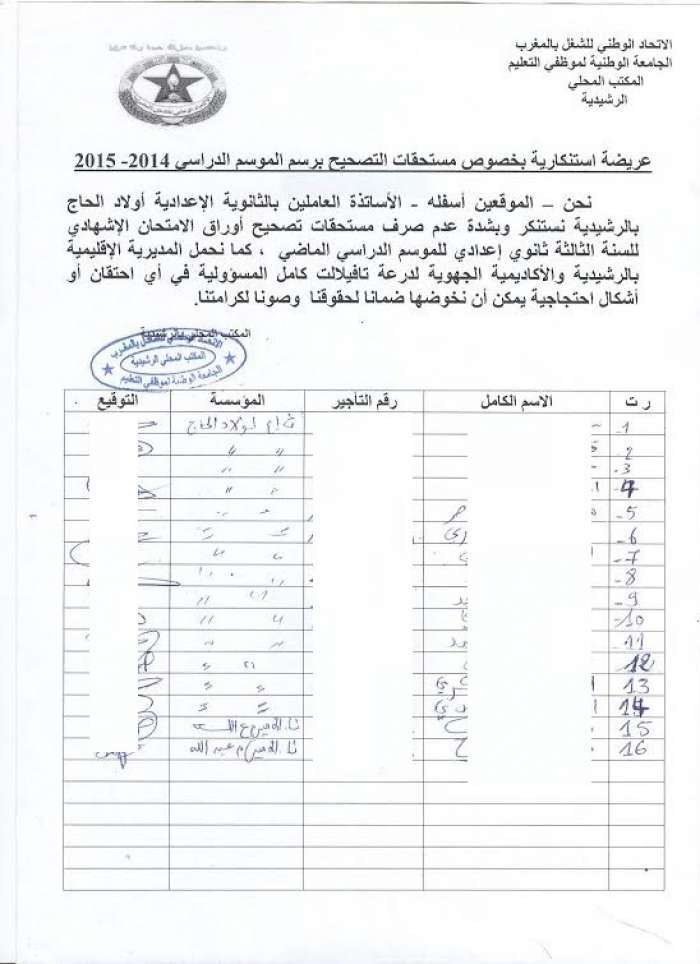 الاتحاد الوطني للشغل بالمغرب
الجامعة الوطنية لموظفي التعليم
المكتب المحلي
الرشيدية
عريضة استنكارية بخصوص مستحقات التصحيح برسم الموسم الدراسي 2014- 2015
نحن – الموقعين أسفله - الأساتذة العاملين بالثانوية الإعدادية أولاد الحاج
بالرشيدية نستنكر وبشدة عدم صرف مستحقات تصحيح أوراق الامتحان الإشهادي
للسنة الثالثة ثانوي إعدادي للموسم الدراسي الماضي ، كما نحمل المديرية الإقليمية
بالرشيدية والأكاديمية الجهوية لدرعة تافيلالت كامل المسؤولية في أي احتقان أو
أشكال احتجاجية يمكن أن نخوضها ضمانا لحقوقنا وصونا لكرامتنا.
المكتب المحلي بالرشيدية
الاتحاد الوطني للشغل بالمغرب
المكتب المحلي الرشيدية
الجامعة الوطنية لموظفي التعليم
ر ت الاسم الكامل رقم التأجير المؤسسة التوقيع
1- اولاد الحاج
2- " "
3- " "
4- " "
5- " "
6- " "
7- " "
8- " "
9- " "
10- " "
11- " "
12 " "
13 " "
14 " "
15
16 عبد الله